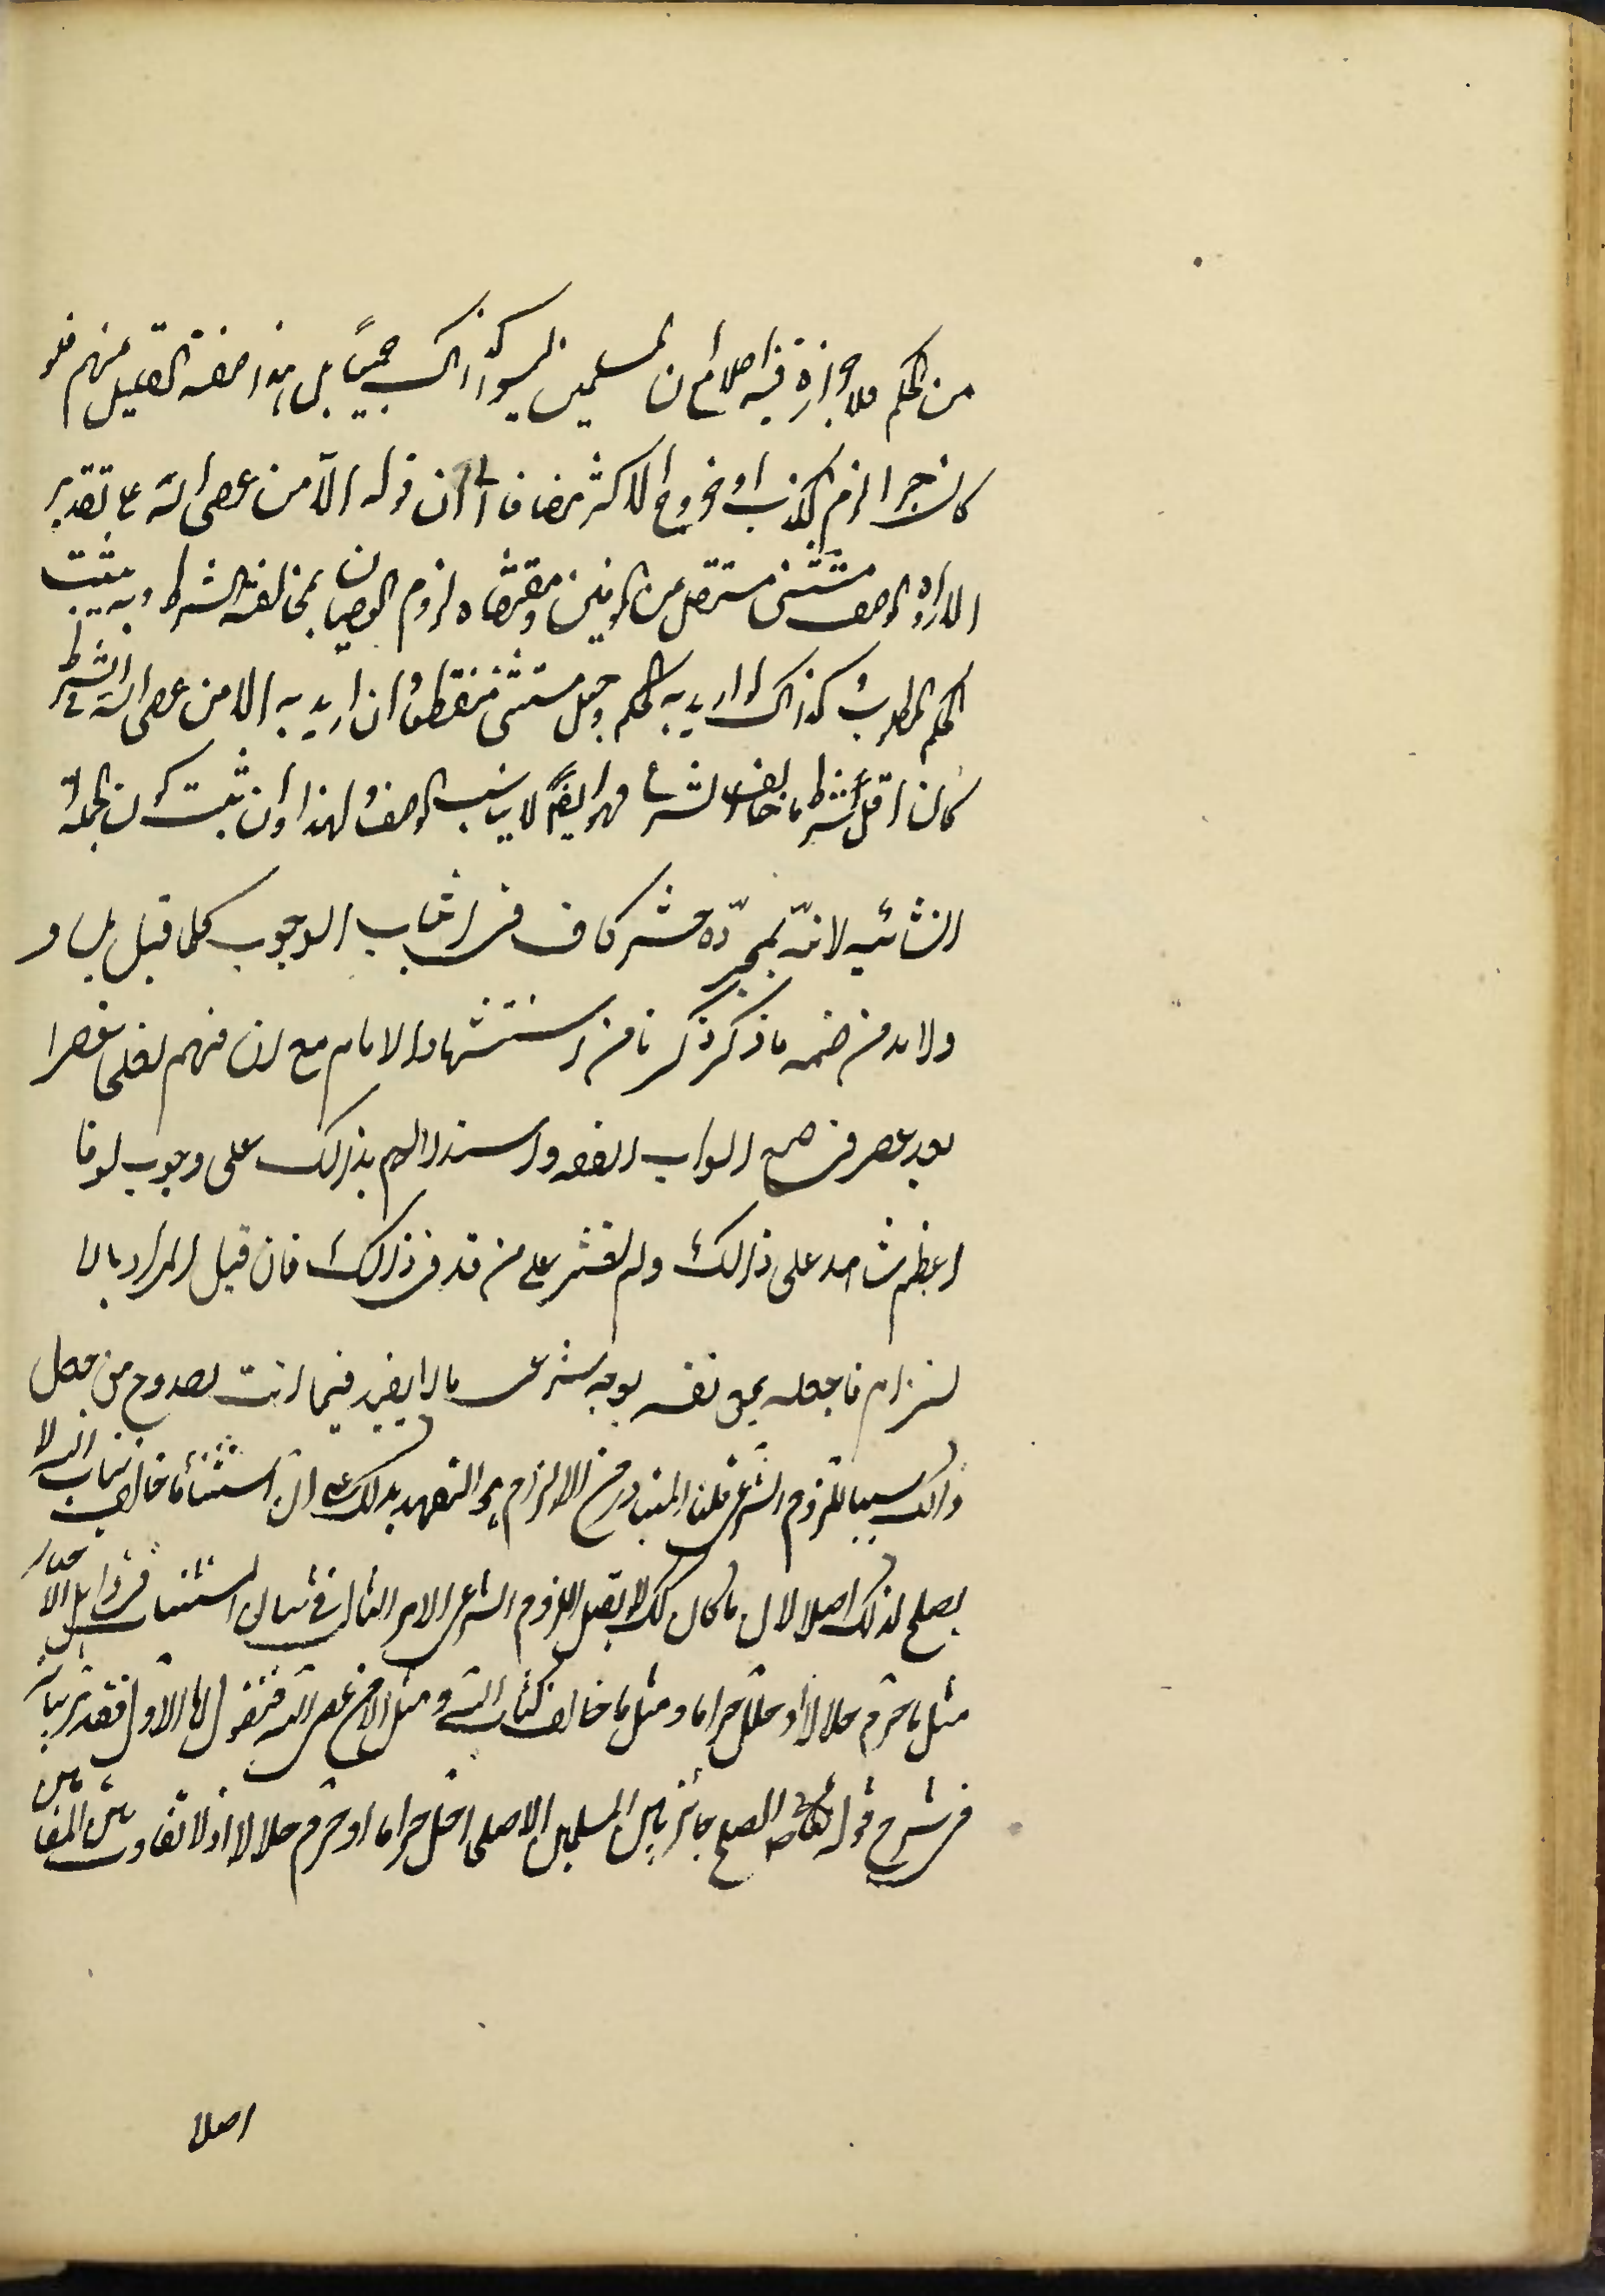 من الحكم فلا جزازة فيه اصلا مع ان المسلمين ليسوا كذلك جميعًا بل هذا صفة القليل منهم فلو
كان خبرا لزم الكذب او خروج الاكثر مضافا الى ان قوله الّا من عصى الله على تقدير
الارادة الوصف مستثنى متصل من المؤمنين ومقتضاه لزوم العصيان بمخالفة الشرط وبه يثبت
الحكم المطلوب وكذلك لو اريد به الحكم وجعل مستثنى منقطعا وان اريد به الا من عصى الله في الشرط
كان اقل شرط ما خالف الشرع فهو ايضًا لا يناسب الوصف ولهذا وان ثبت كون الجملة
انشائيه لانّه بمجرّده كاف في اثبات الوجوب كما قيل بل و
ولابد من ضم ما ذكر ذكرنا من استشهاد الامام مع ان فهم العلماء عصرا
بعد عصر في جميع ابواب الفقه واستدلالهم بذلك على وجوب الوفا
اعظم شاهد على ذلك ولم نعثر على من قدح في ذلك فان قيل المراد بالا
لتزام ما جعله على نفسه بوجه شرعي مالا يفيد فيما انت بصدده من جعل
ذلك سببا للزوم الشرعي قلنا المتبادر من الالزام هو التعهد بذلك على ان استثناء ما خالف كتاب الله لا
يصلح لذلك اصلا لان ما كان كك لا يقبل اللزوم الشرعي الامر الثالث في بيان المستثنيات في هذه الاخبار
مثل ما حرّم حلالا او حلّل حراما ومثل ما خالف كتاب الله ومثل الا من عصى الله فنقول اما الاول فقد مرّ بيانه
في شرح قوله الصلح جائز بين المسلمين الا صلحا احلّ حراما او حرّم حلالا اذ لا تفاوت بين المقامين
اصلا